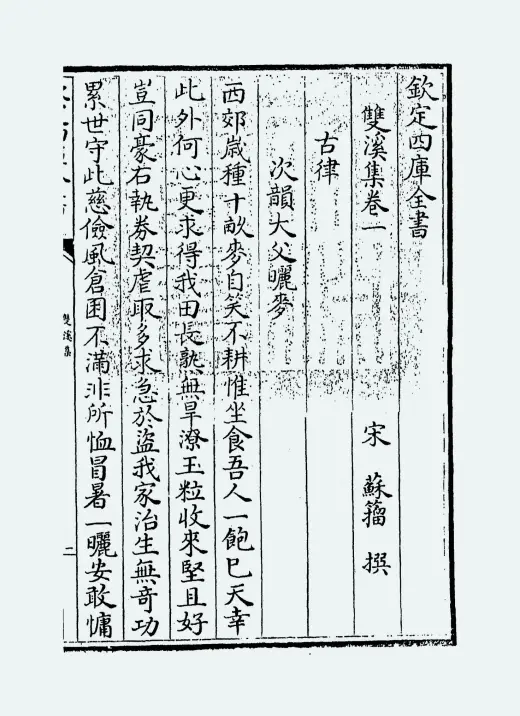 欽定四庫全書
雙溪集卷一　宋　蘇籀　撰
古律
次韻大父曬麥
西郊歳種十畝麥自笑不耕惟坐食吾人一飽已天幸
此外何心更求得我田長熟無旱潦玉粒收來堅且好
豈同豪右執券契虐取多求急於盜我家治生無奇功
累世守此慈儉風倉囷不滿非所恤冒暑一曬安敢慵
雙溪集
二